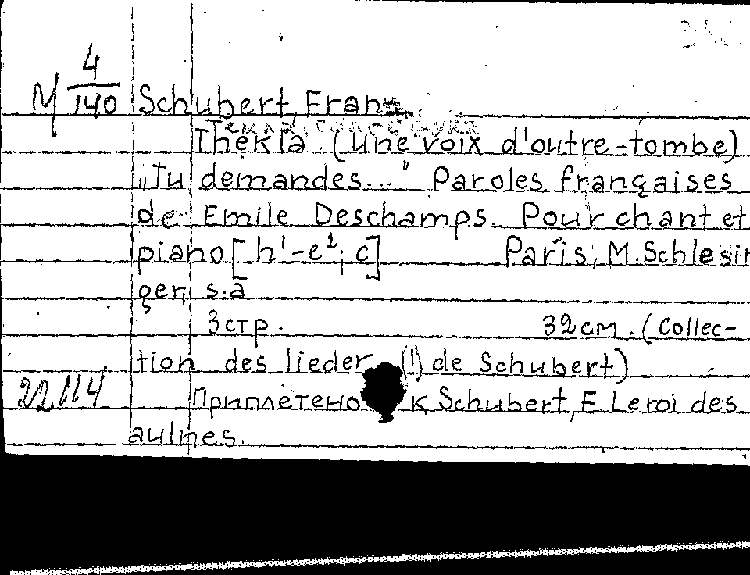 М 4/140 Schubert, Franz
Thekla (Une voix d'outre-tombe)
„Tu demandes..." Paroles françaises
de Emile Deschamps. Pour chant et
piano [h'-e²; c] Paris, M. Schlesin
ger, s.a
3 стр. 32 см. (Collec-
tion des lieder (!) de Schubert)
22114 Приплетено к Schubert, F. Le roi des
aulnes.